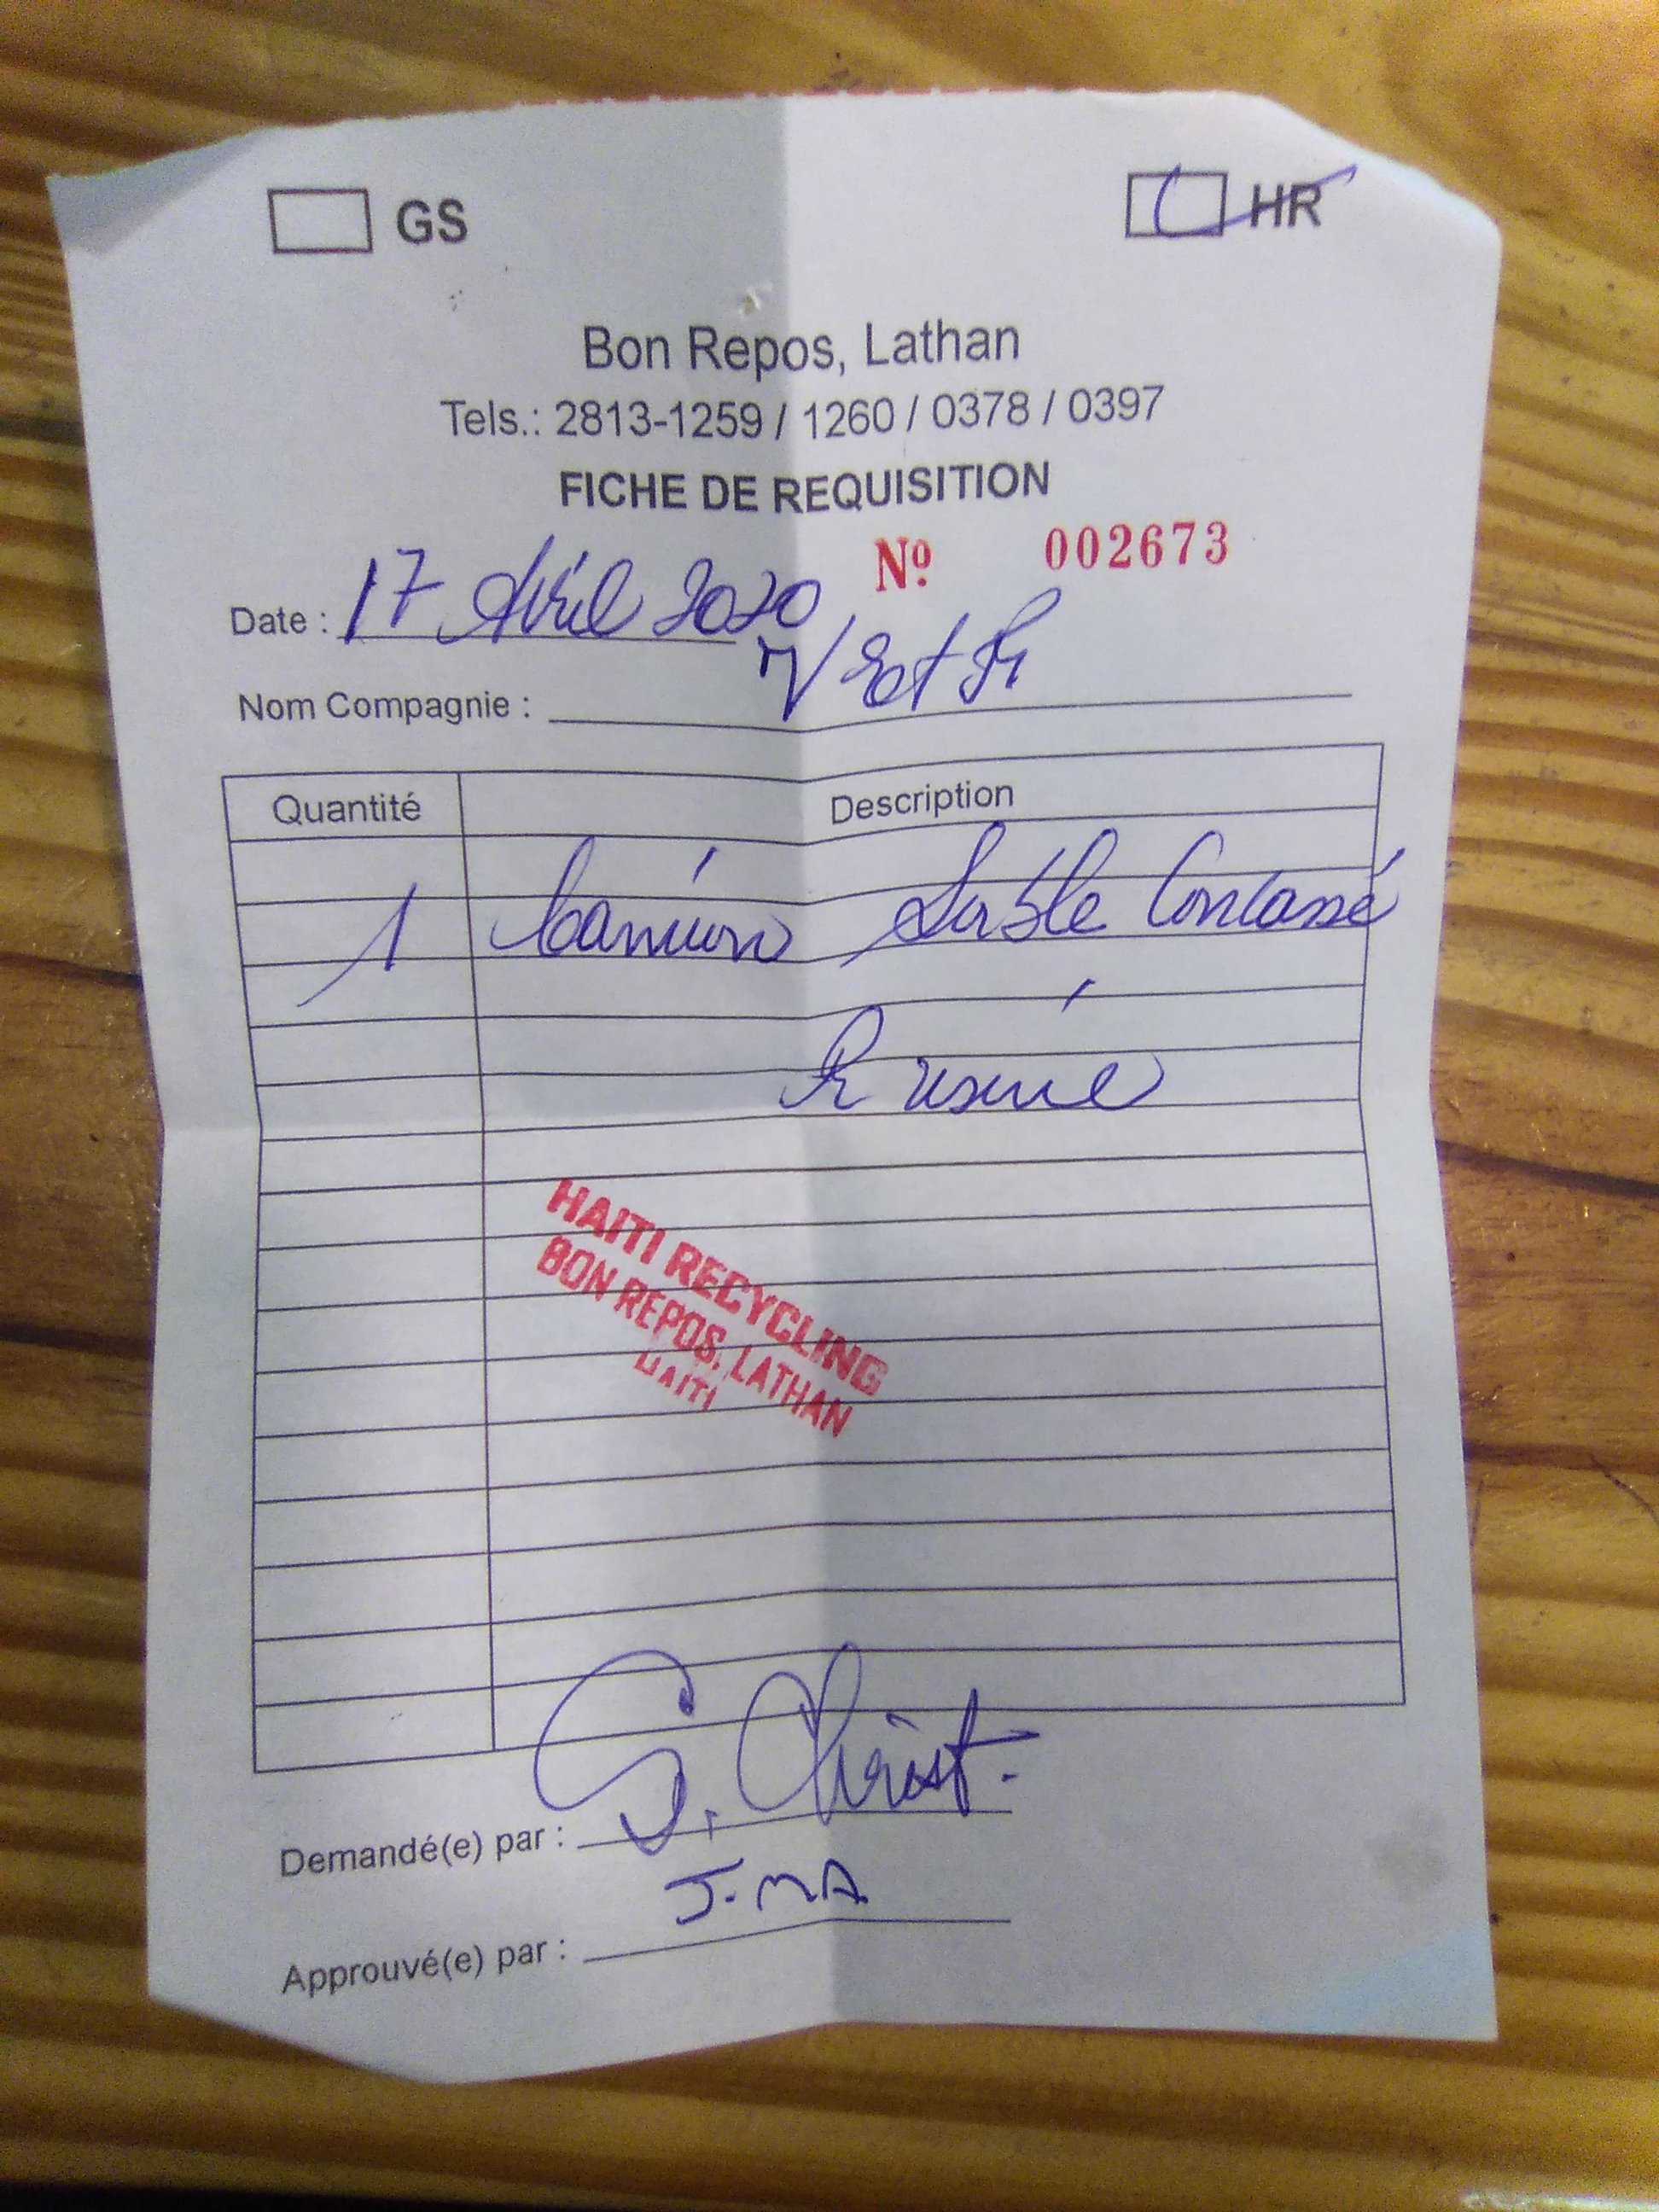 GS HR
Bon Repos, Lathan
Tels.: 2813-1259 / 1260 / 0378 / 0397
FICHE DE REQUISITION
Nº 002673
Date : 17 Avril 2020
Nom Compagnie :
Quantité Description
1 Camion Sable Concassé
HAITI RECYCLING
BON REPOS, LATHAN
HAITI
Demandé(e) par : S. Christ.
Approuvé(e) par : J.MA